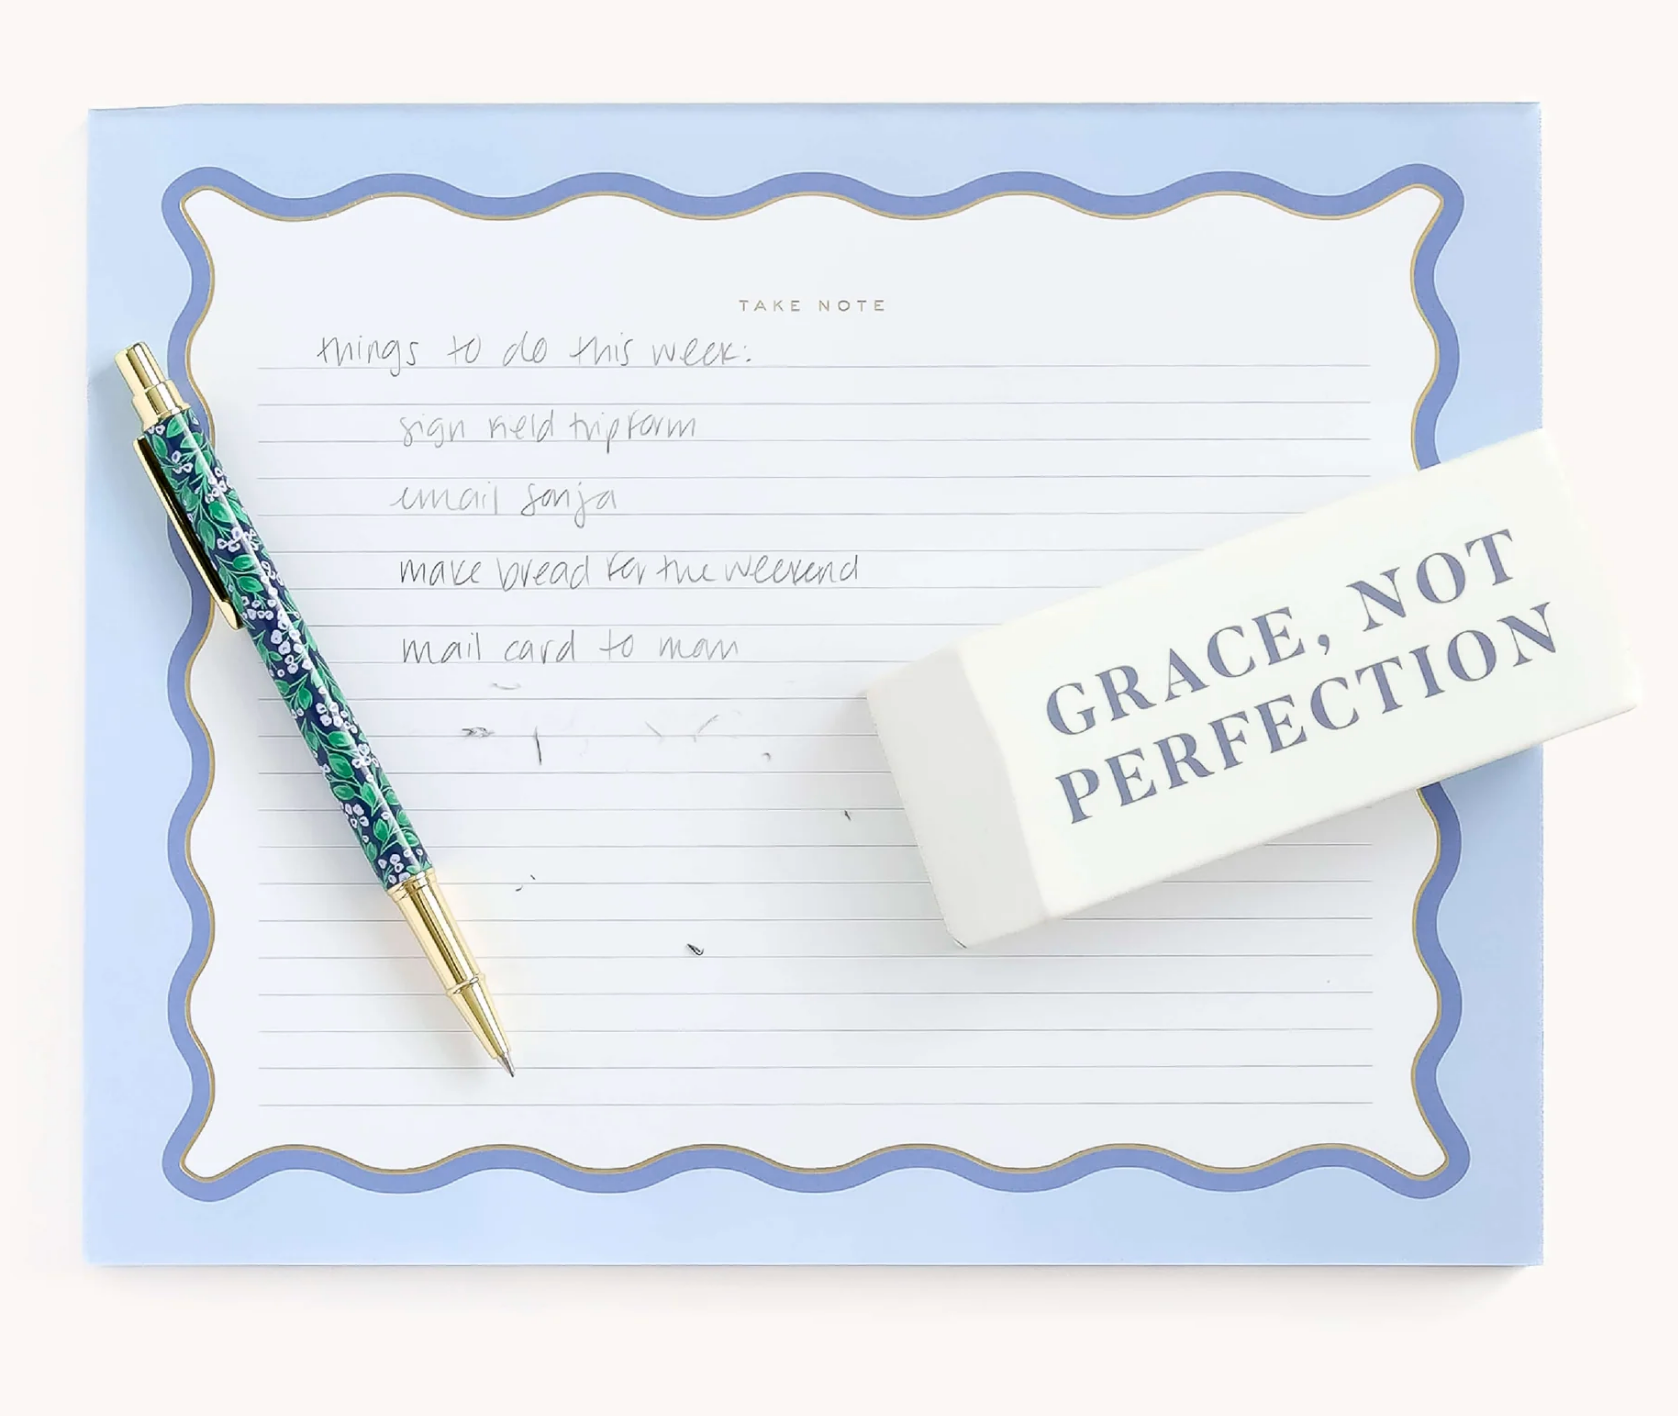 TAKE NOTE
things to do this week:
sign field trip form
email sonja
make bread for the weekend
mail card to mom
GRACE, NOT
PERFECTION